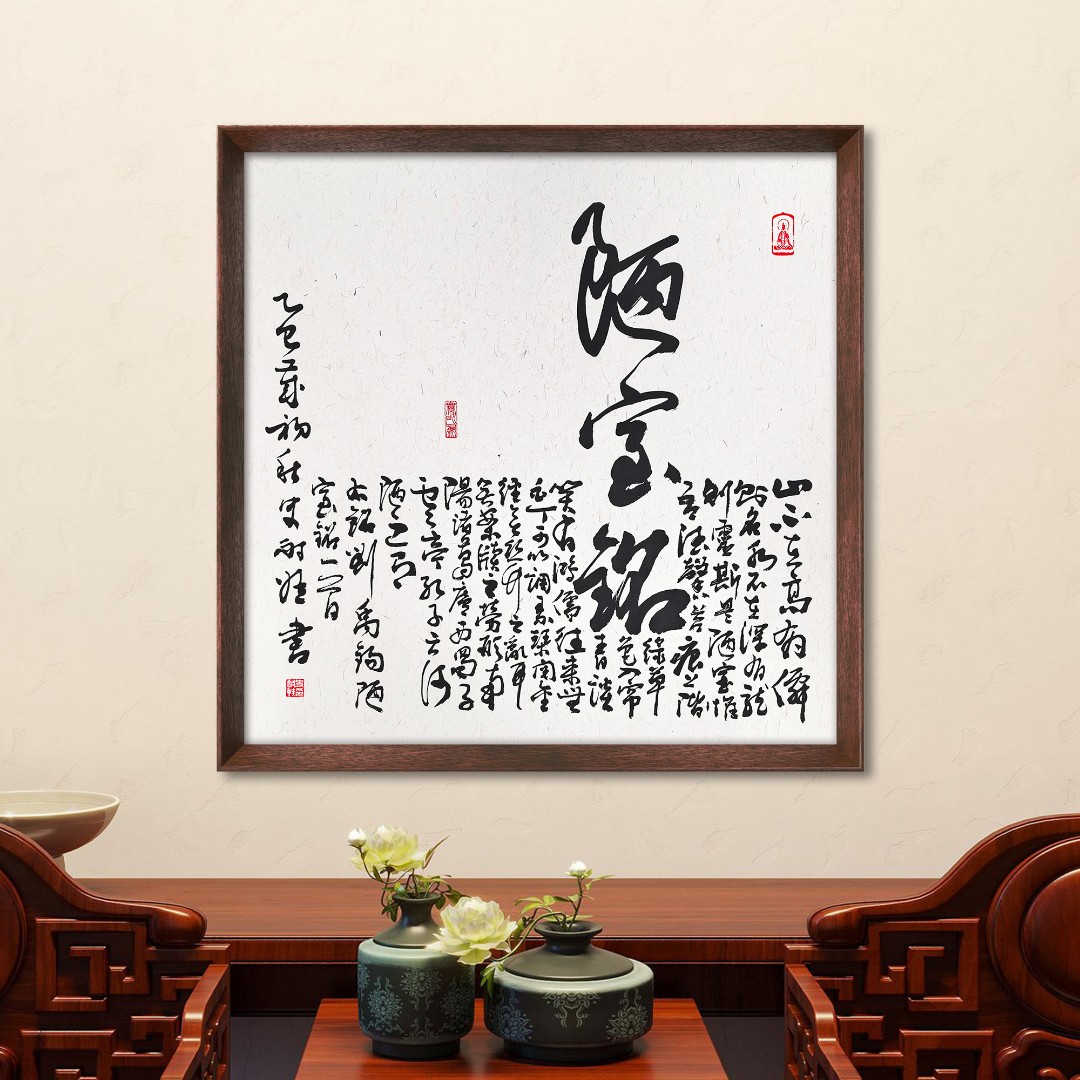 陋室銘
山不在高有僊
則名水不在深有龍
則靈斯是陋室惟
吾德馨苔痕上階
綠草
色入帘
青談
笑有鴻儒往來無
白丁可以調素琴閱金
經無絲竹之亂耳
無案牘之勞形南
陽諸葛廬西蜀子
雲亭孔子云何
陋之有
右錄劉禹錫陋
室銘一首
乙巳歲初秋史耐書